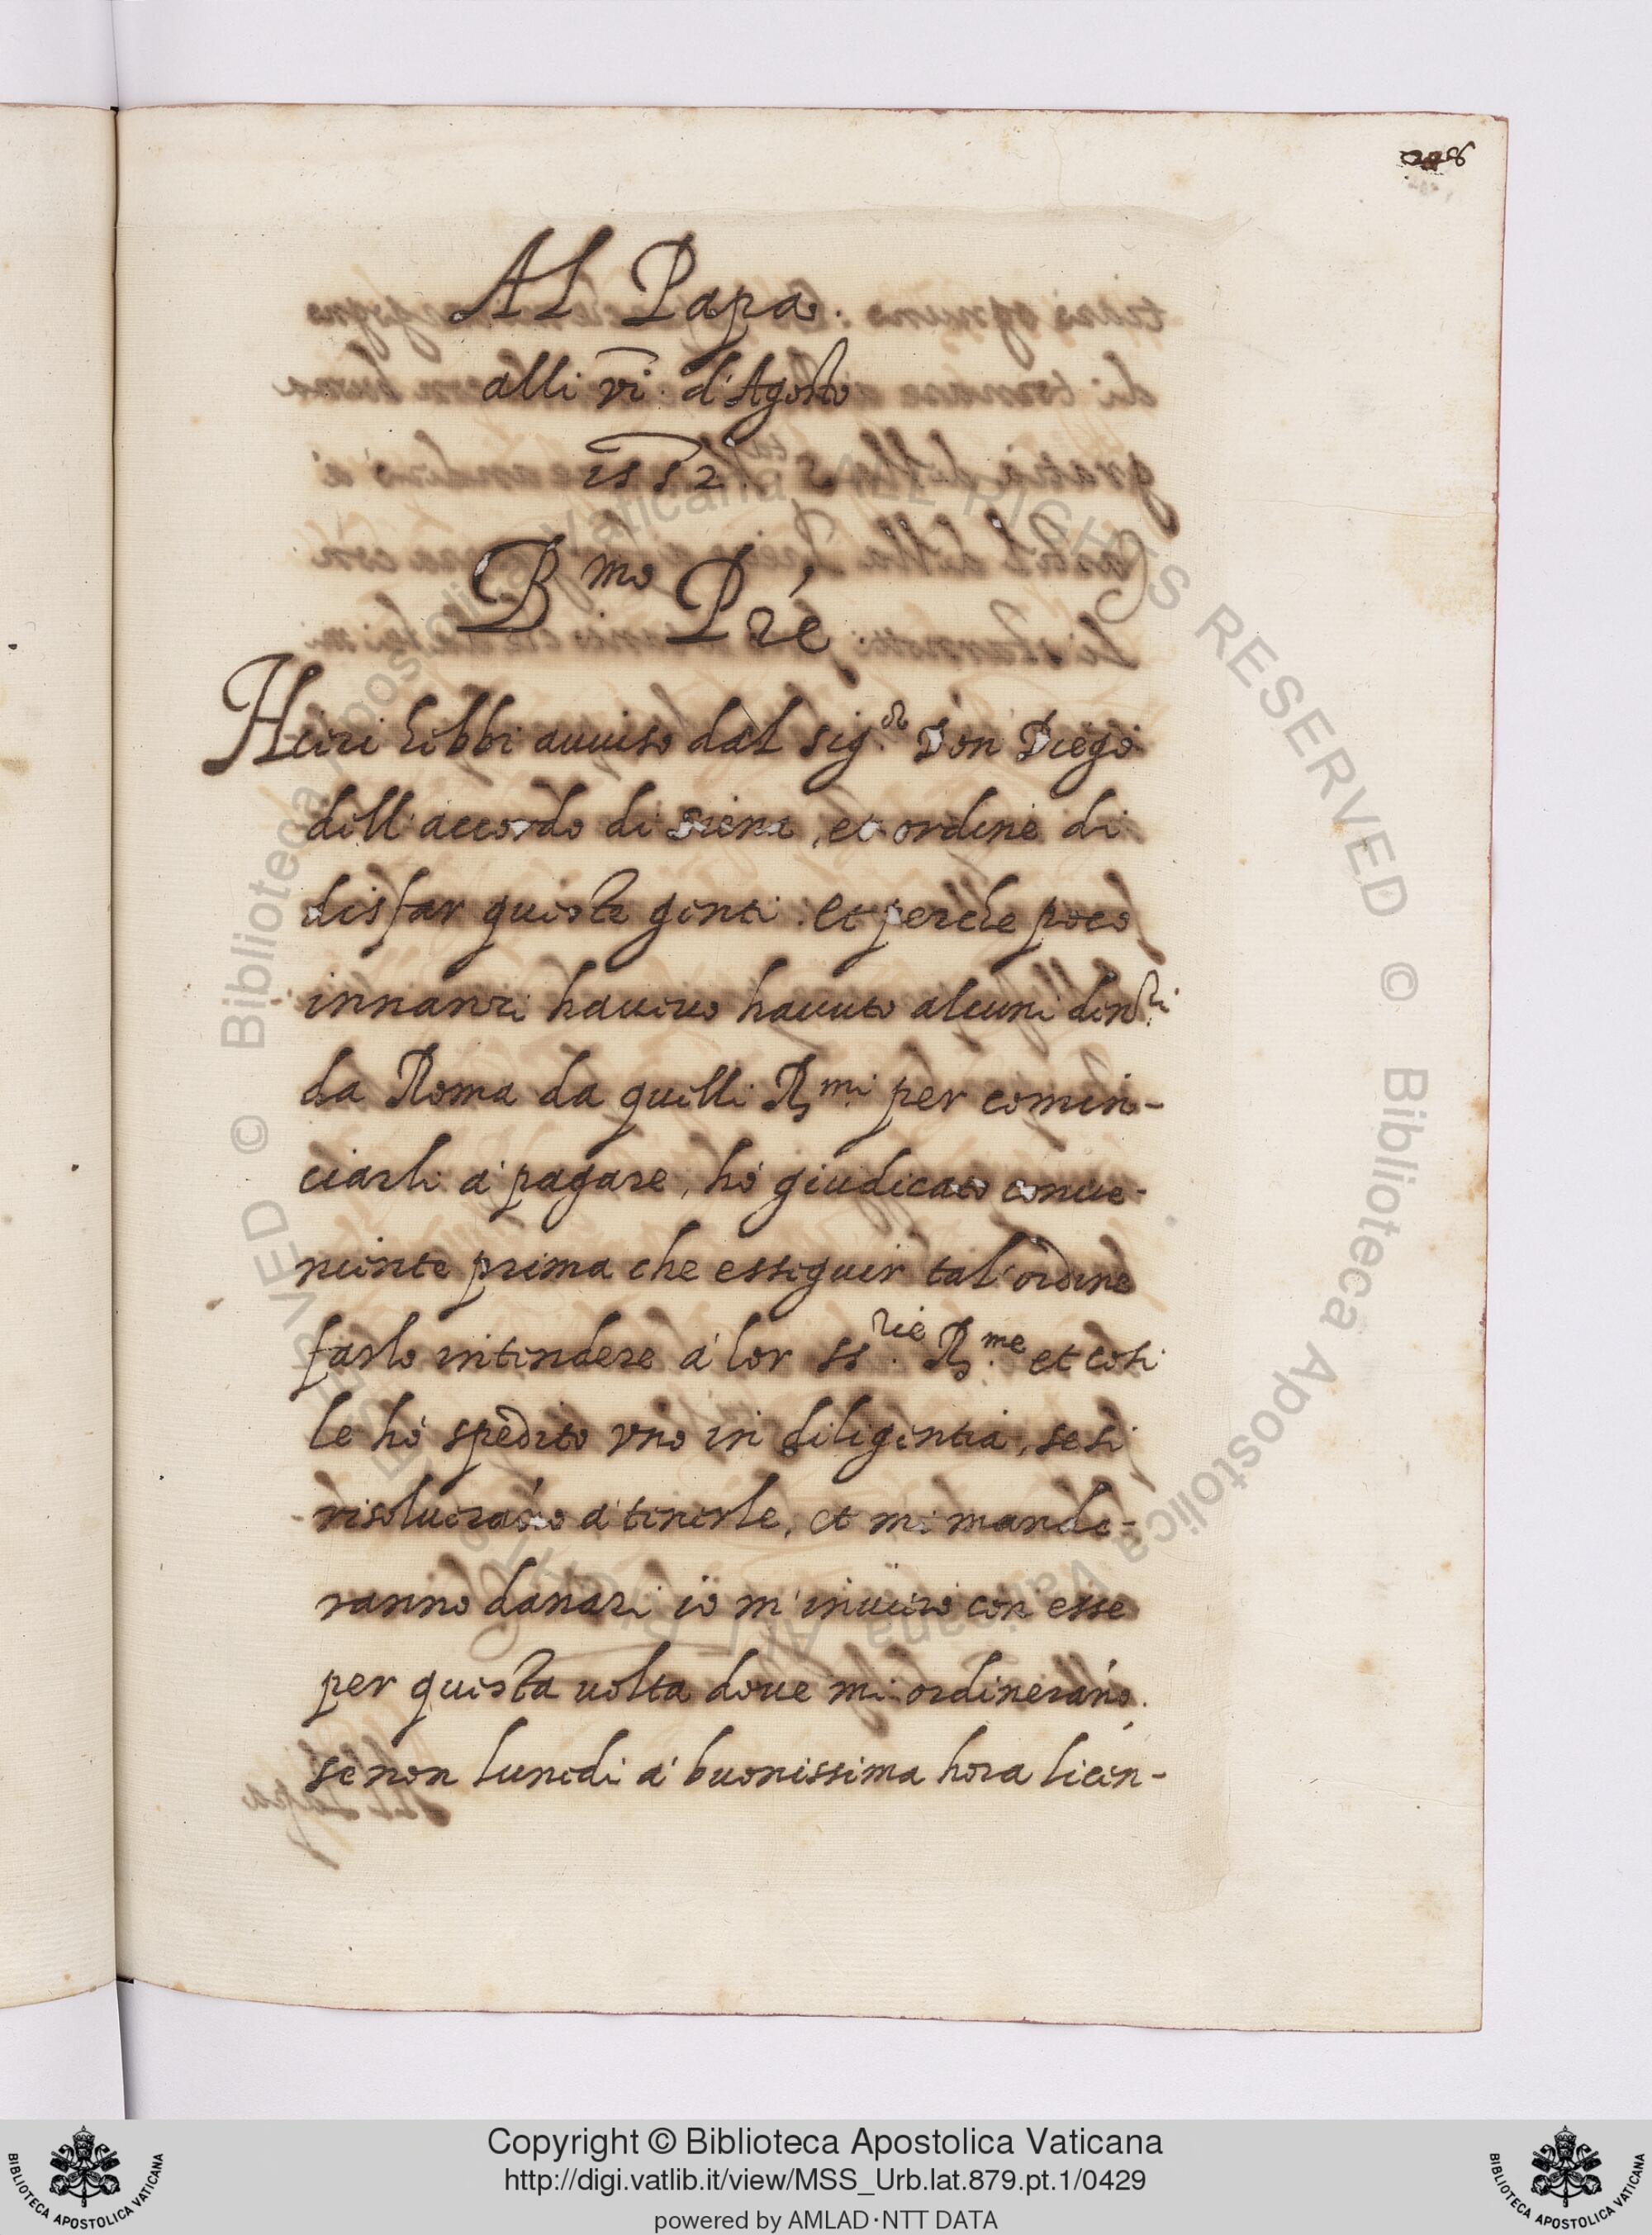 Al Papa.
alli vi. d'Agosto
1552.
B.mo Prē
Hieri hebbi auuiso dal sig.re Don Diego
dell'accordo di siena, et ordine di
disfar queste genti. et perche poco
innanzi haueuo hauuto alcuni den.ri
da Roma da quelli R.mi per comin-
ciarli à pagare, hò giudicato conue-
niente prima che esseguir tal'ordine
farlo intendere à lor ss.rie R.me et cosi
le hò spedito vno in diligentia, se si
risolueranō à tenerle, et mi mande-
ranno danari io m'inuiero con esse
per questa uolta doue mi ordineranō.
se non lunedi à buonissima hora licen-
Copyright © Biblioteca Apostolica Vaticana
http://digi.vatlib.it/view/MSS_Urb.lat.879.pt.1/0429
powered by AMLAD·NTT DATA
BIBLIOTECA APOSTOLICA VATICANA
BIBLIOTECA APOSTOLICA VATICANA
© Biblioteca Apostolica Vaticana ALL RIGHTS RESERVED © Biblioteca Apostolica Vaticana ALL RIGHTS RESERVED